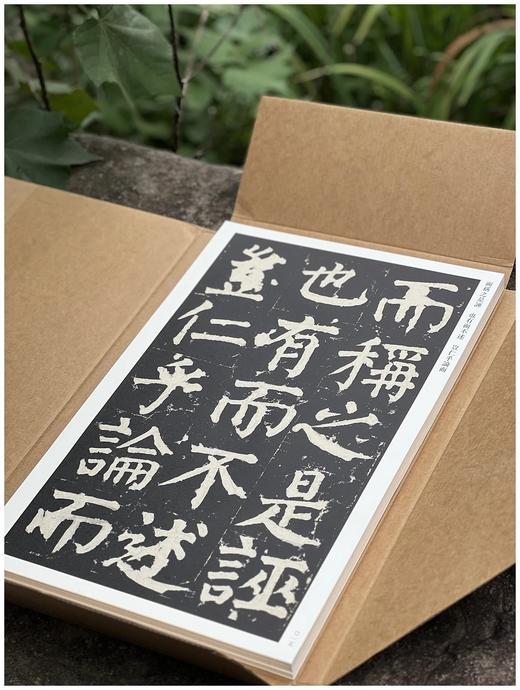 而稱之是誣
也有而不述
豈仁乎論而
而稱之是誣 也有而不述 豈仁乎論而